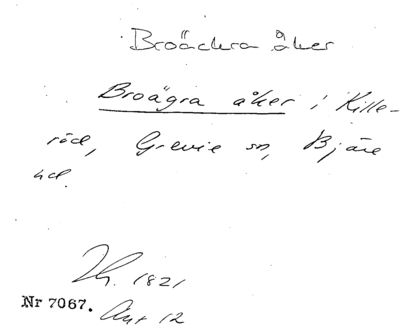 Broäckra åker
Broägra åker i Kille-
röd, Grevie sn, Bjäre
hd.
Lh. 1821
Nr 7067. Akt 12